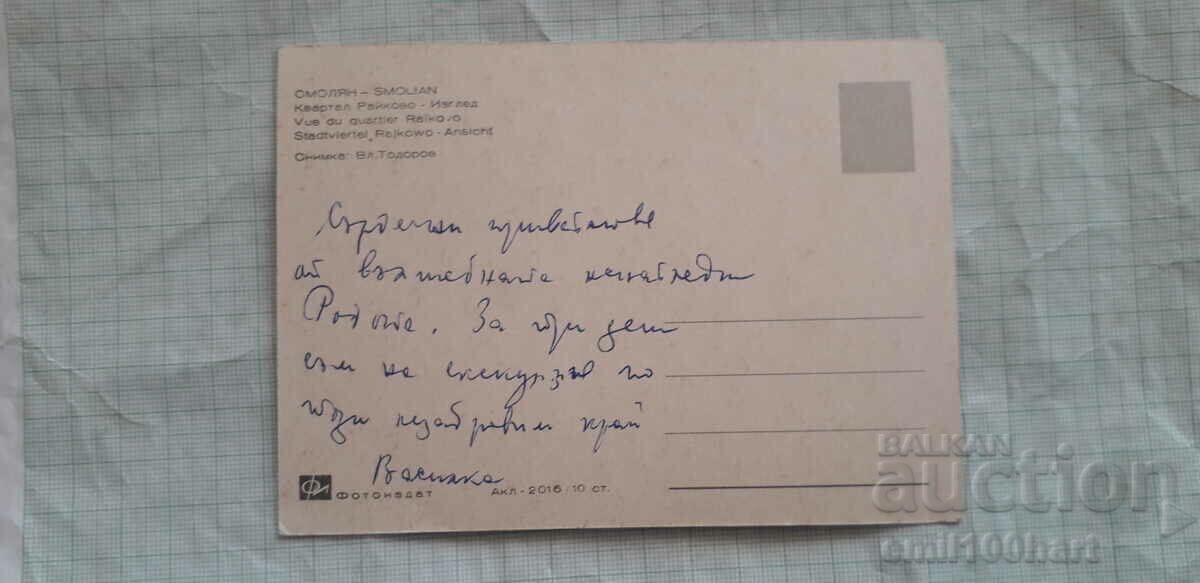 СМОЛЯН – SMOLIAN
Квартал Райково - Изглед
Vue du quartier Raïkovo
Stadtviertel Rajkowo - Ansicht
Снимка: Вл. Тодоров
Сърдечни приветствове
от вълшебната ненагледна
Родопа. За три дни
съм на екскурзия по
този незабравим край
Василка
Фотоиздат
Акл-2016/10 ст.
BALKAN
auction
emil100hart